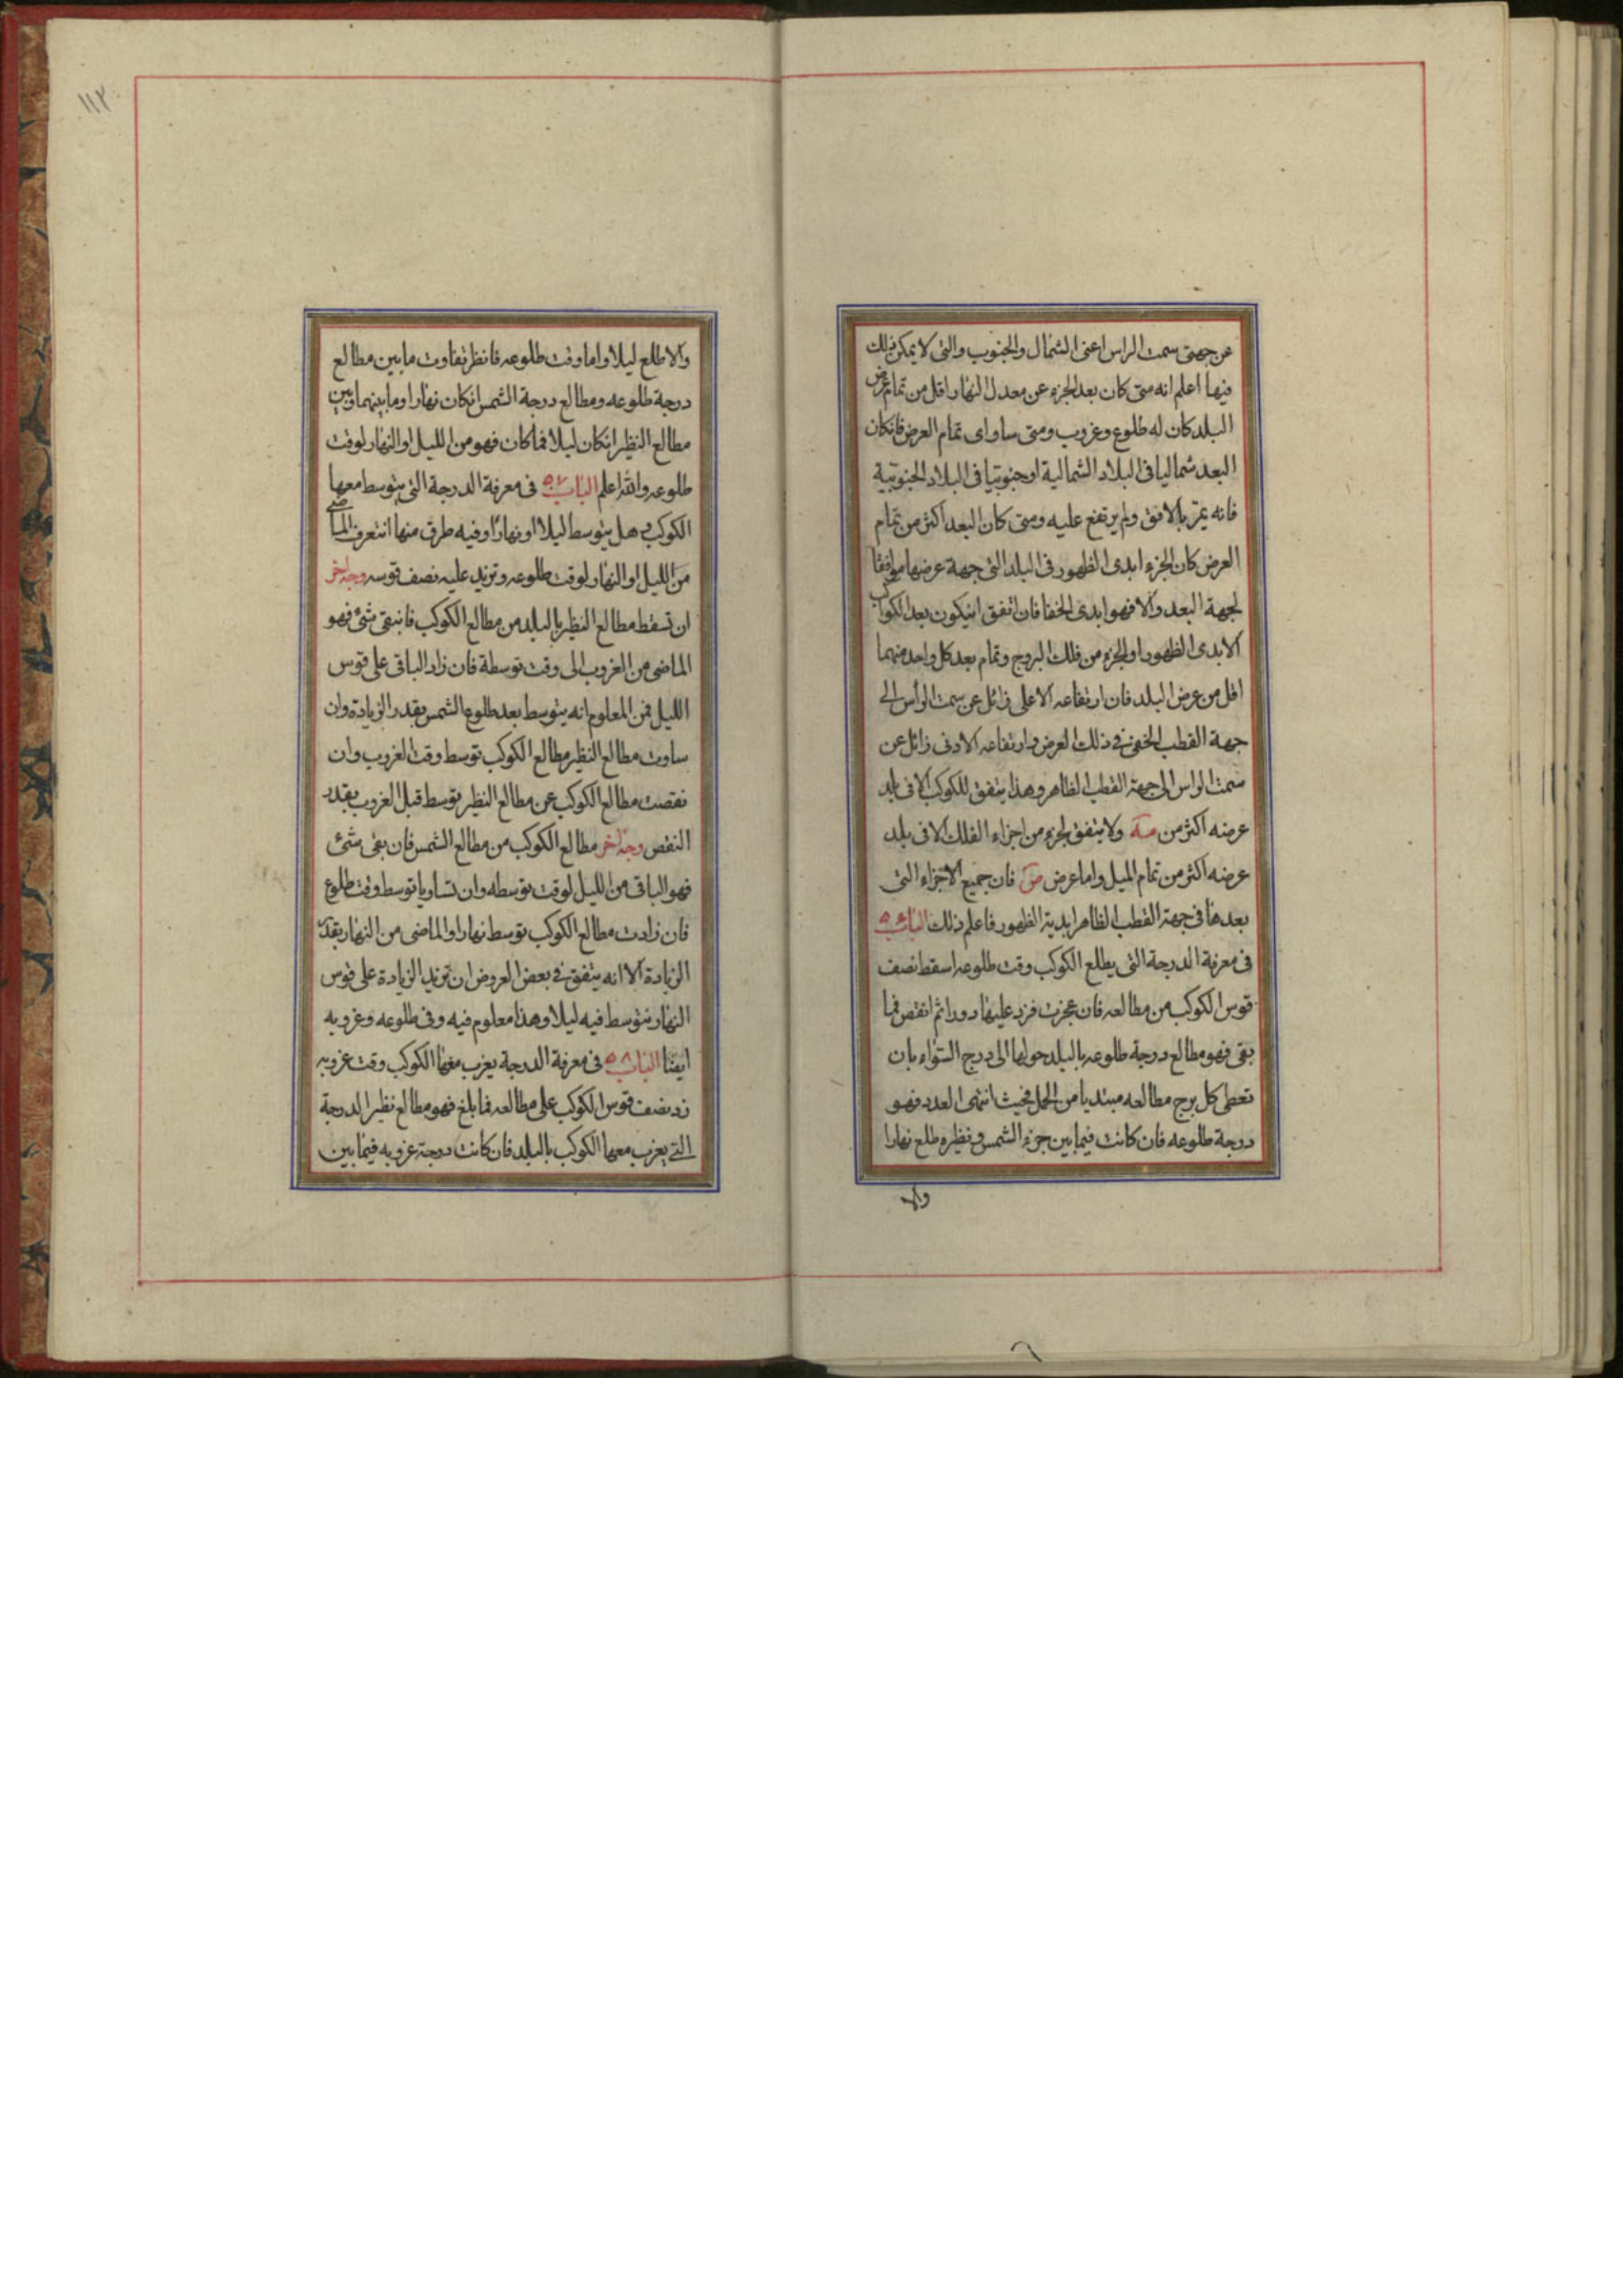 عن جهتى سمت الراس اعنى الشمال والجنوب والتى لا يمكن ذلك
فيها اعلم انه متى كان بعد الجزء عن معدل النهار اقل من تمام عرض
البلد كان له طلوع وغروب ومتى ساواى تمام العرض فانكان
البعد شماليا فى البلاد الشمالية او جنوبيا فى البلاد الجنوبية
فانه يمر بالافق ولم يرتفع عليه ومتى كان البعد اكثر من تمام
العرض كان الجزء ابدى الظهور فى البلد التى جهة عرضها موافقا
لجهة البعد والا فهو ابدى الخفا فان اتفق ان يكون بعد الكواكب
الابدى الظهور او الجزء من فلك البروج وتمام بعد كل واحد منهما
اقل من عرض البلد فان ارتفاعه الاعلى زائل عن سمت الرأس الى
جهة القطب الخفى فى ذلك العرض وارتفاعه الادنى زائل عن
سمت الراس الى جهة القطب الظاهر وهذا يتفق للكوكب الا فى بلد
عرضه اكثر من مـه ولا يتفق لجزء من اجزاء الفلك الا فى بلد
عرضه اكثر من تمام الميل واما عرض ص فان جميع الاجزاء التى
بعدها فى جهة القطب الظاهر ابدية الظهور فاعلم ذلك الباب
فى معرفة الدرجة التى يطلع الكوكب وقت طلوعه اسقط نصف
قوس الكوكب من مطالعه فان عجزت فزد عليها دورا ثم انقص فما
بقى فهو مطالع درجة طلوعه بالبلد حولها الى درج السواء بان
تعطى كل برج مطالعه مبتديا من الحمل فحيث انتهى العدد فهو
درجة طلوعه فان كانت فيما بين جزء الشمس ونظيره طلع نهارا
والا
١١٢
والا طلع ليلا واما وقت طلوعه فانظر تفاوت ما بين مطالع
درجة طلوعه ومطالع درجة الشمس انكان نهارا وما بينهما وبين
مطالع النظير انكان ليلا فما كان فهو من الليل او النهار لوقت
طلوعه والله اعلم الباب ٥٧ فى معرفة الدرجة التى يتوسط معها
الكوكب وهل يتوسط ليلا او نهارا وفيه طرق منها ان تعرف الماضى
من الليل او النهار لوقت طلوعه وتزيد عليه نصف قوسه وجه اخر
ان تسقط مطالع النظير بالبلد من مطالع الكوكب فان بقى شئ فهو
الماضى من الغروب الى وقت توسطة فان زاد الباقى على قوس
الليل فمن المعلوم انه يتوسط بعد طلوع الشمس بقدر الزيادة وان
ساوت مطالع النظير مطالع الكوكب توسط وقت الغروب وان
نقصت مطالع الكوكب عن مطالع النظير توسط قبل الغروب بقدر
النقص وجه اخر مطالع الكوكب من مطالع الشمس فان بقى شئ
فهو الباقى من الليل لوقت توسطه وان تساويا توسط وقت طلوع
فان زادت مطالع الكوكب توسط نهارا والماضى من النهار بقدر
الزيادة الا انه يتفق فى بعض العروض ان تزيد الزيادة على قوس
النهار فيتوسط فيه ليلا وهذا معلوم فيه وفى طلوعه وغروبه
ايضا الباب ٥٨ فى معرفة الدرجة يغرب معها الكوكب وقت غروبه
زد نصف قوس الكوكب على مطالعه فما بلغ فهو مطالع نظير الدرجة
التى يغرب معها الكوكب بالبلد فان كانت درجة غروبه فيما بين